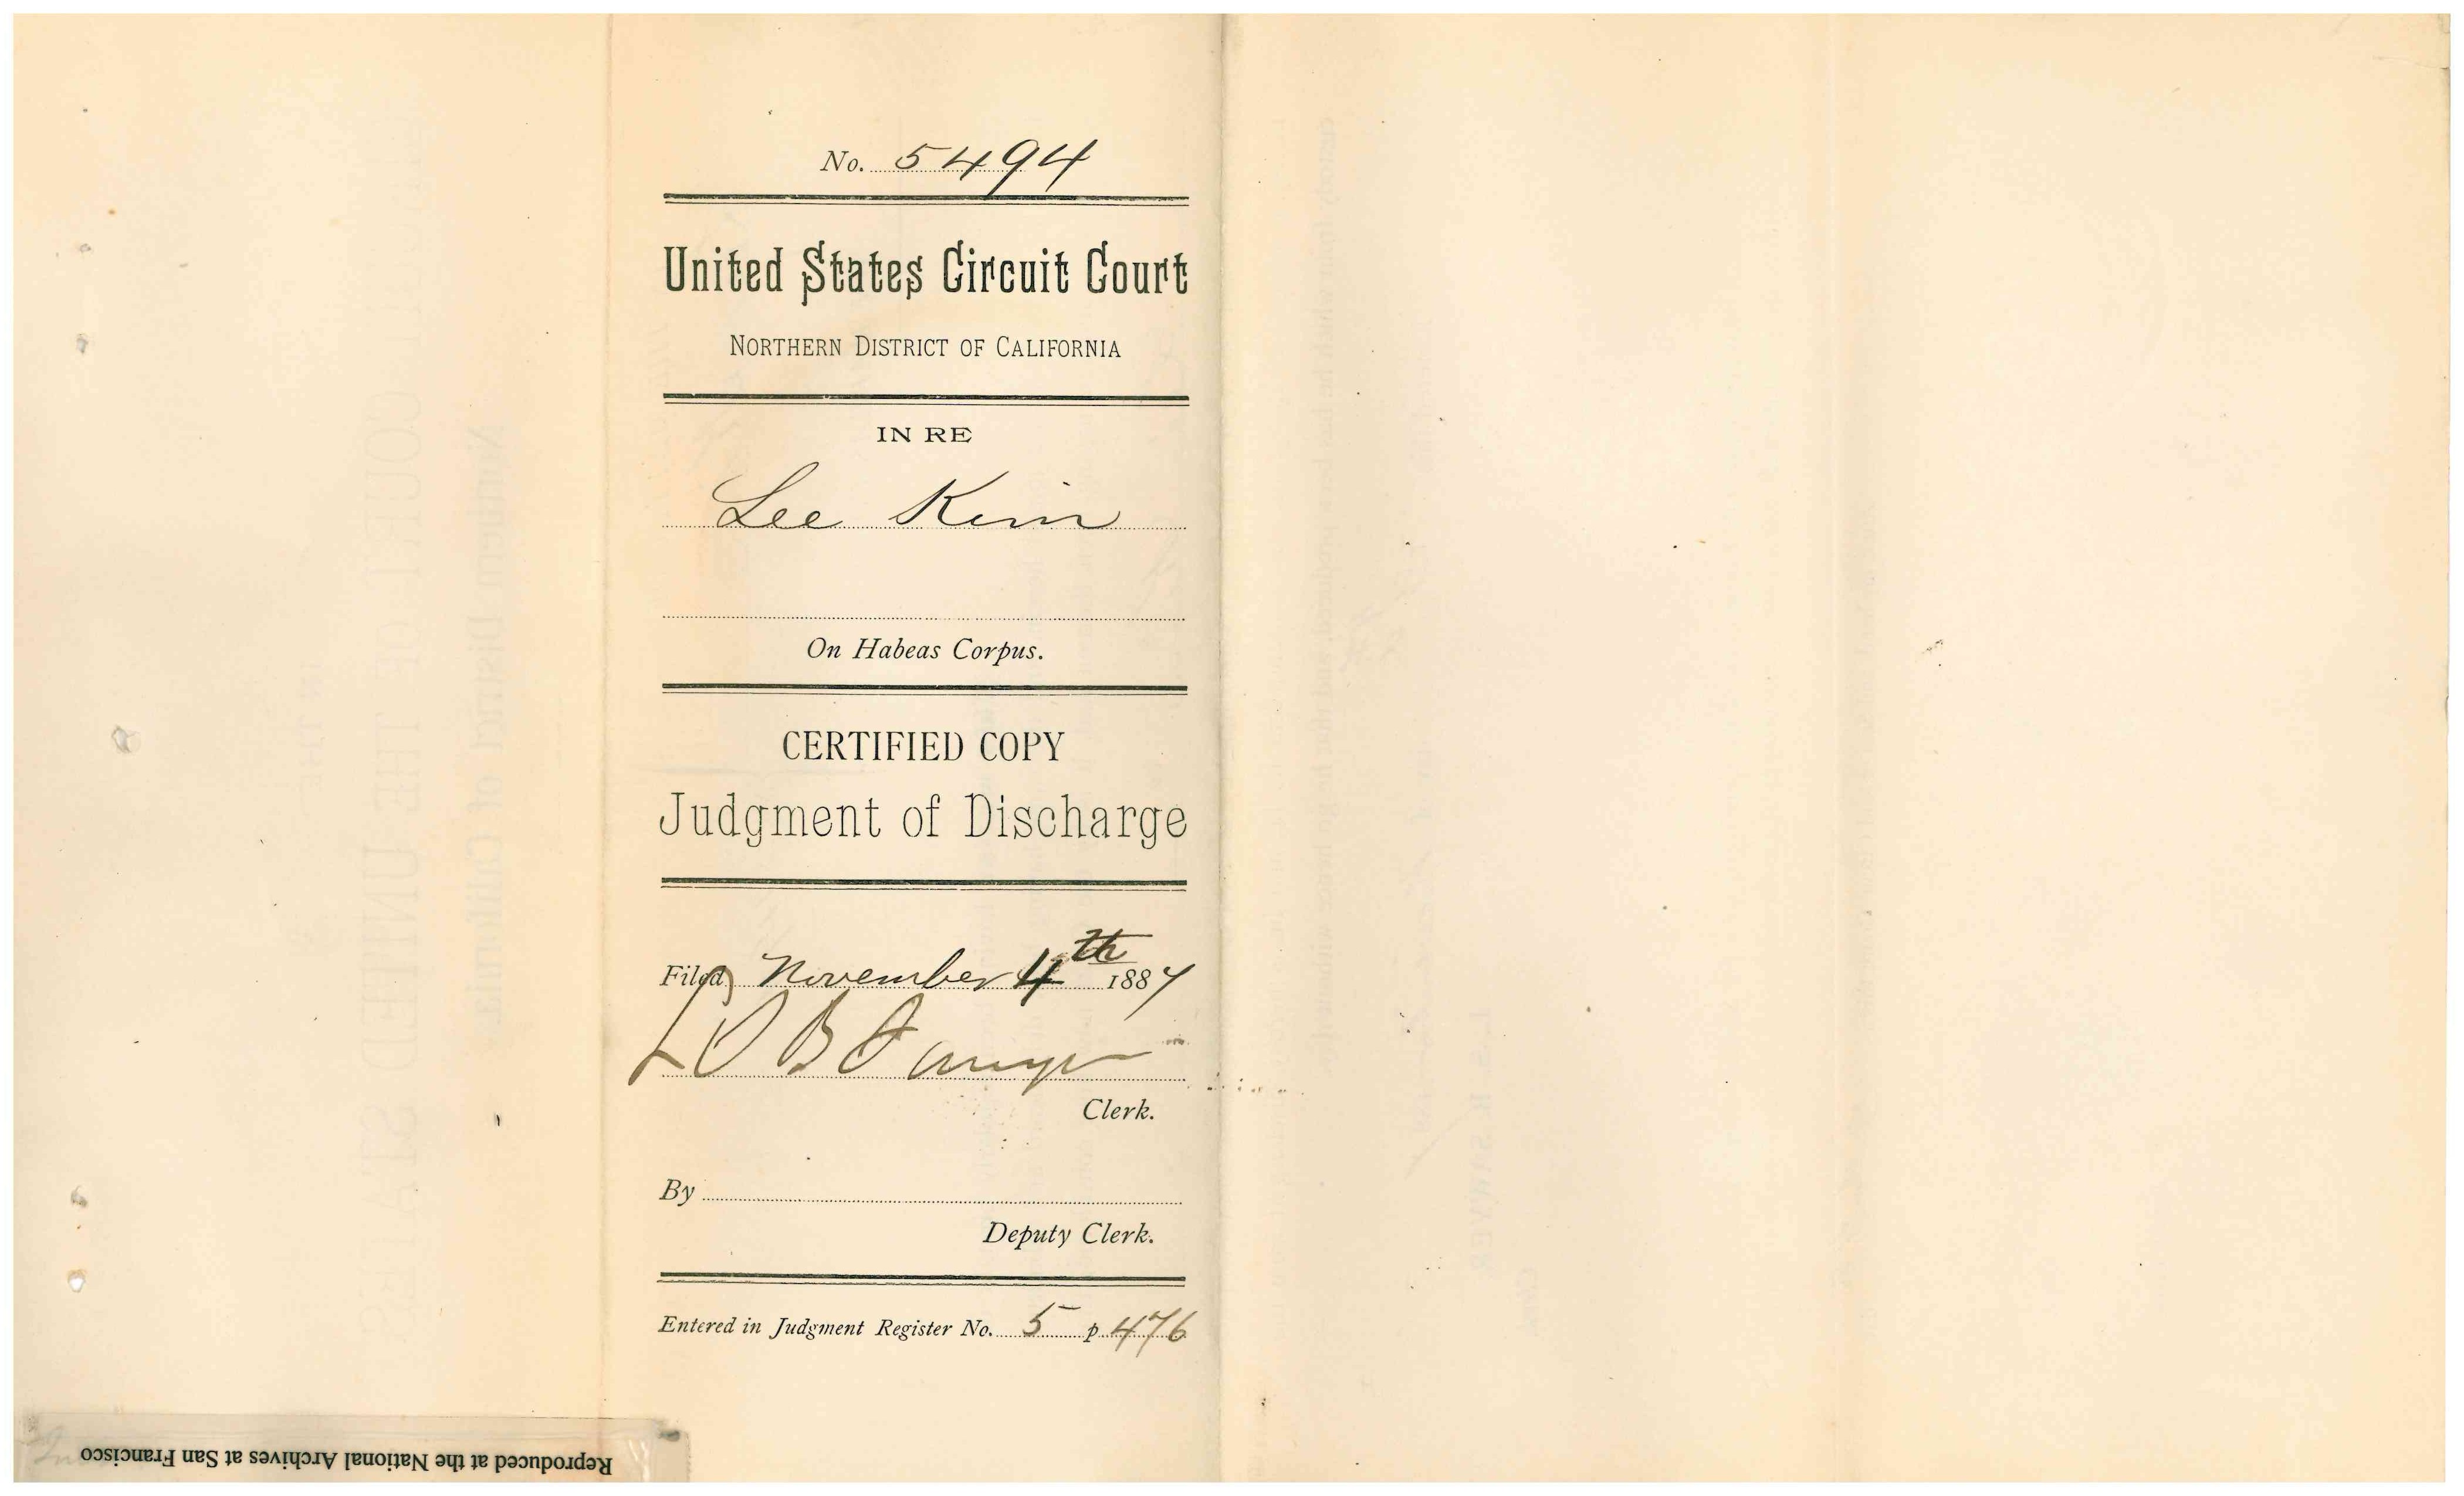 No. 5494
United States Circuit Court
NORTHERN DISTRICT OF CALIFORNIA
IN RE
Lee Kim
On Habeas Corpus.
CERTIFIED COPY
Judgment of Discharge
Filed November 4th 1887
L S B Sawyer
Clerk.
By
Deputy Clerk.
Entered in Judgment Register No. 5 p 476
Reproduced at the National Archives at San Francisco